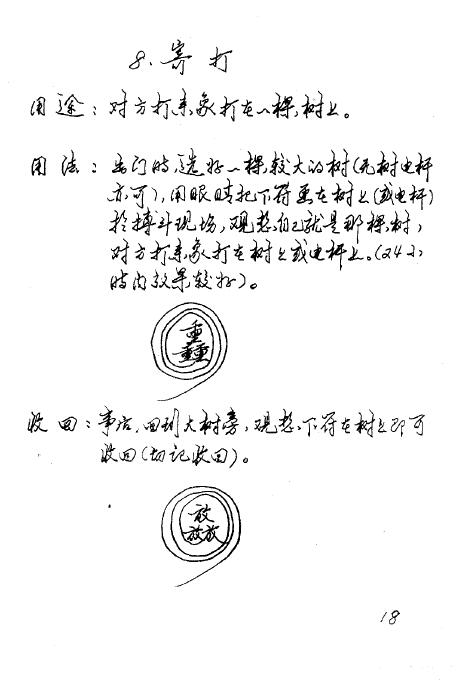 8. 寄打
用途：对方打来象打在一棵树上。
用法：出门时，选好一棵较大的树(无树电杆
亦可)，用眼睛把下符画在树上(或电杆)
於搏斗现场，观想自己就是那棵树，
对方打来象打在树上或电杆上。(24小
时内效果较好)。
重
重重
收回：事后，回到大树旁，观想下符在树上即可
收回(切记收回)。
放
放放
18